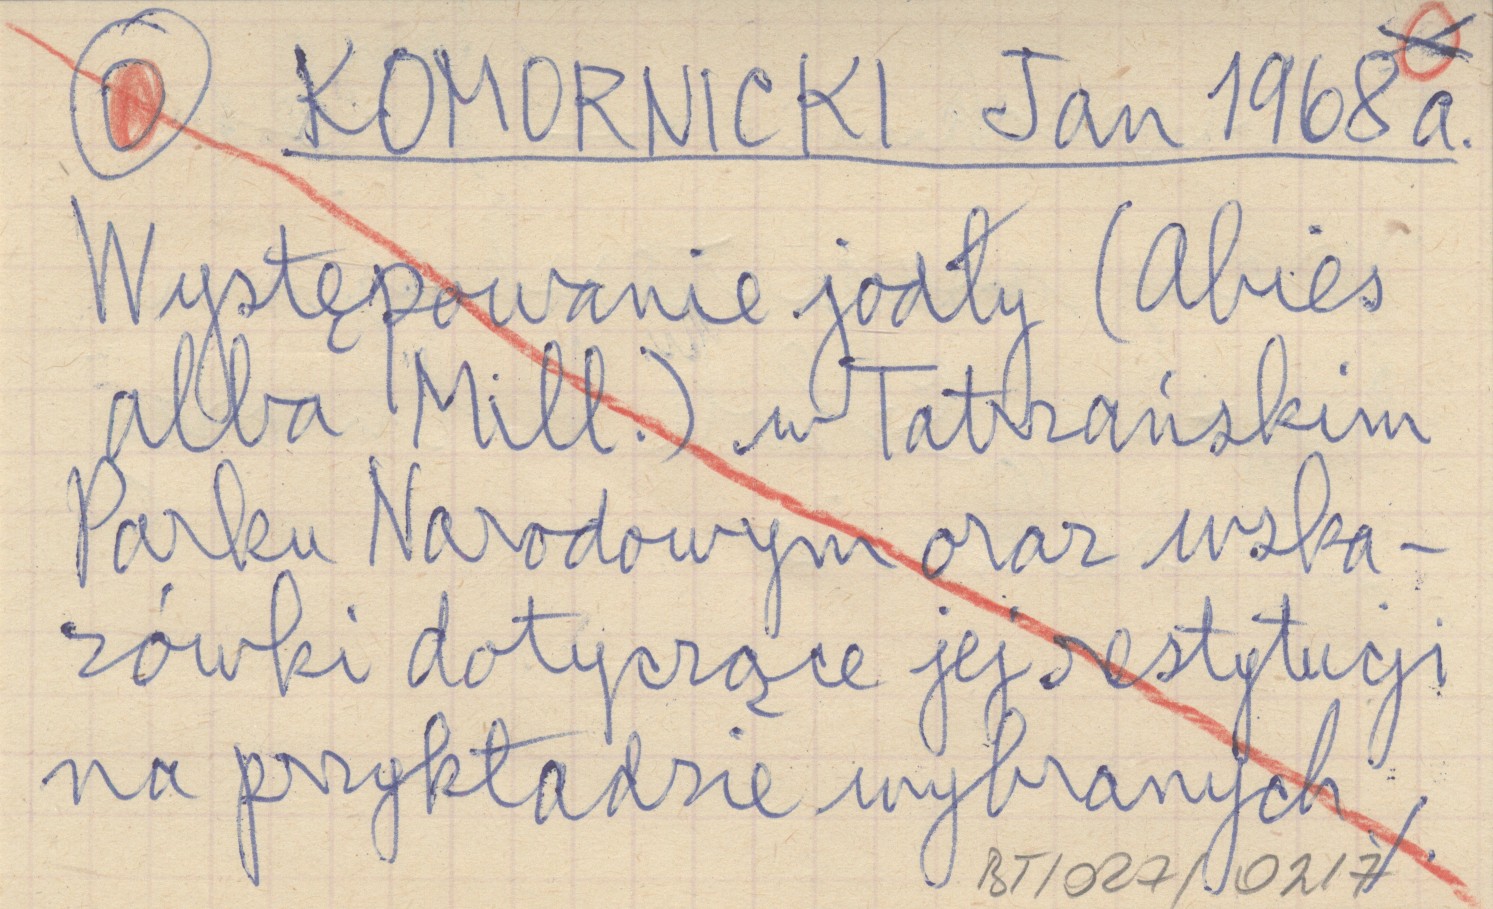 KOMORNICKI Jan 1968a.
Występowanie jodły (Abies
alba Mill.) w Tatrzańskim
Parku Narodowym oraz wska-
zówki dotyczące jej restytucji
na przykładzie wybranych ./.
BT/027/0217